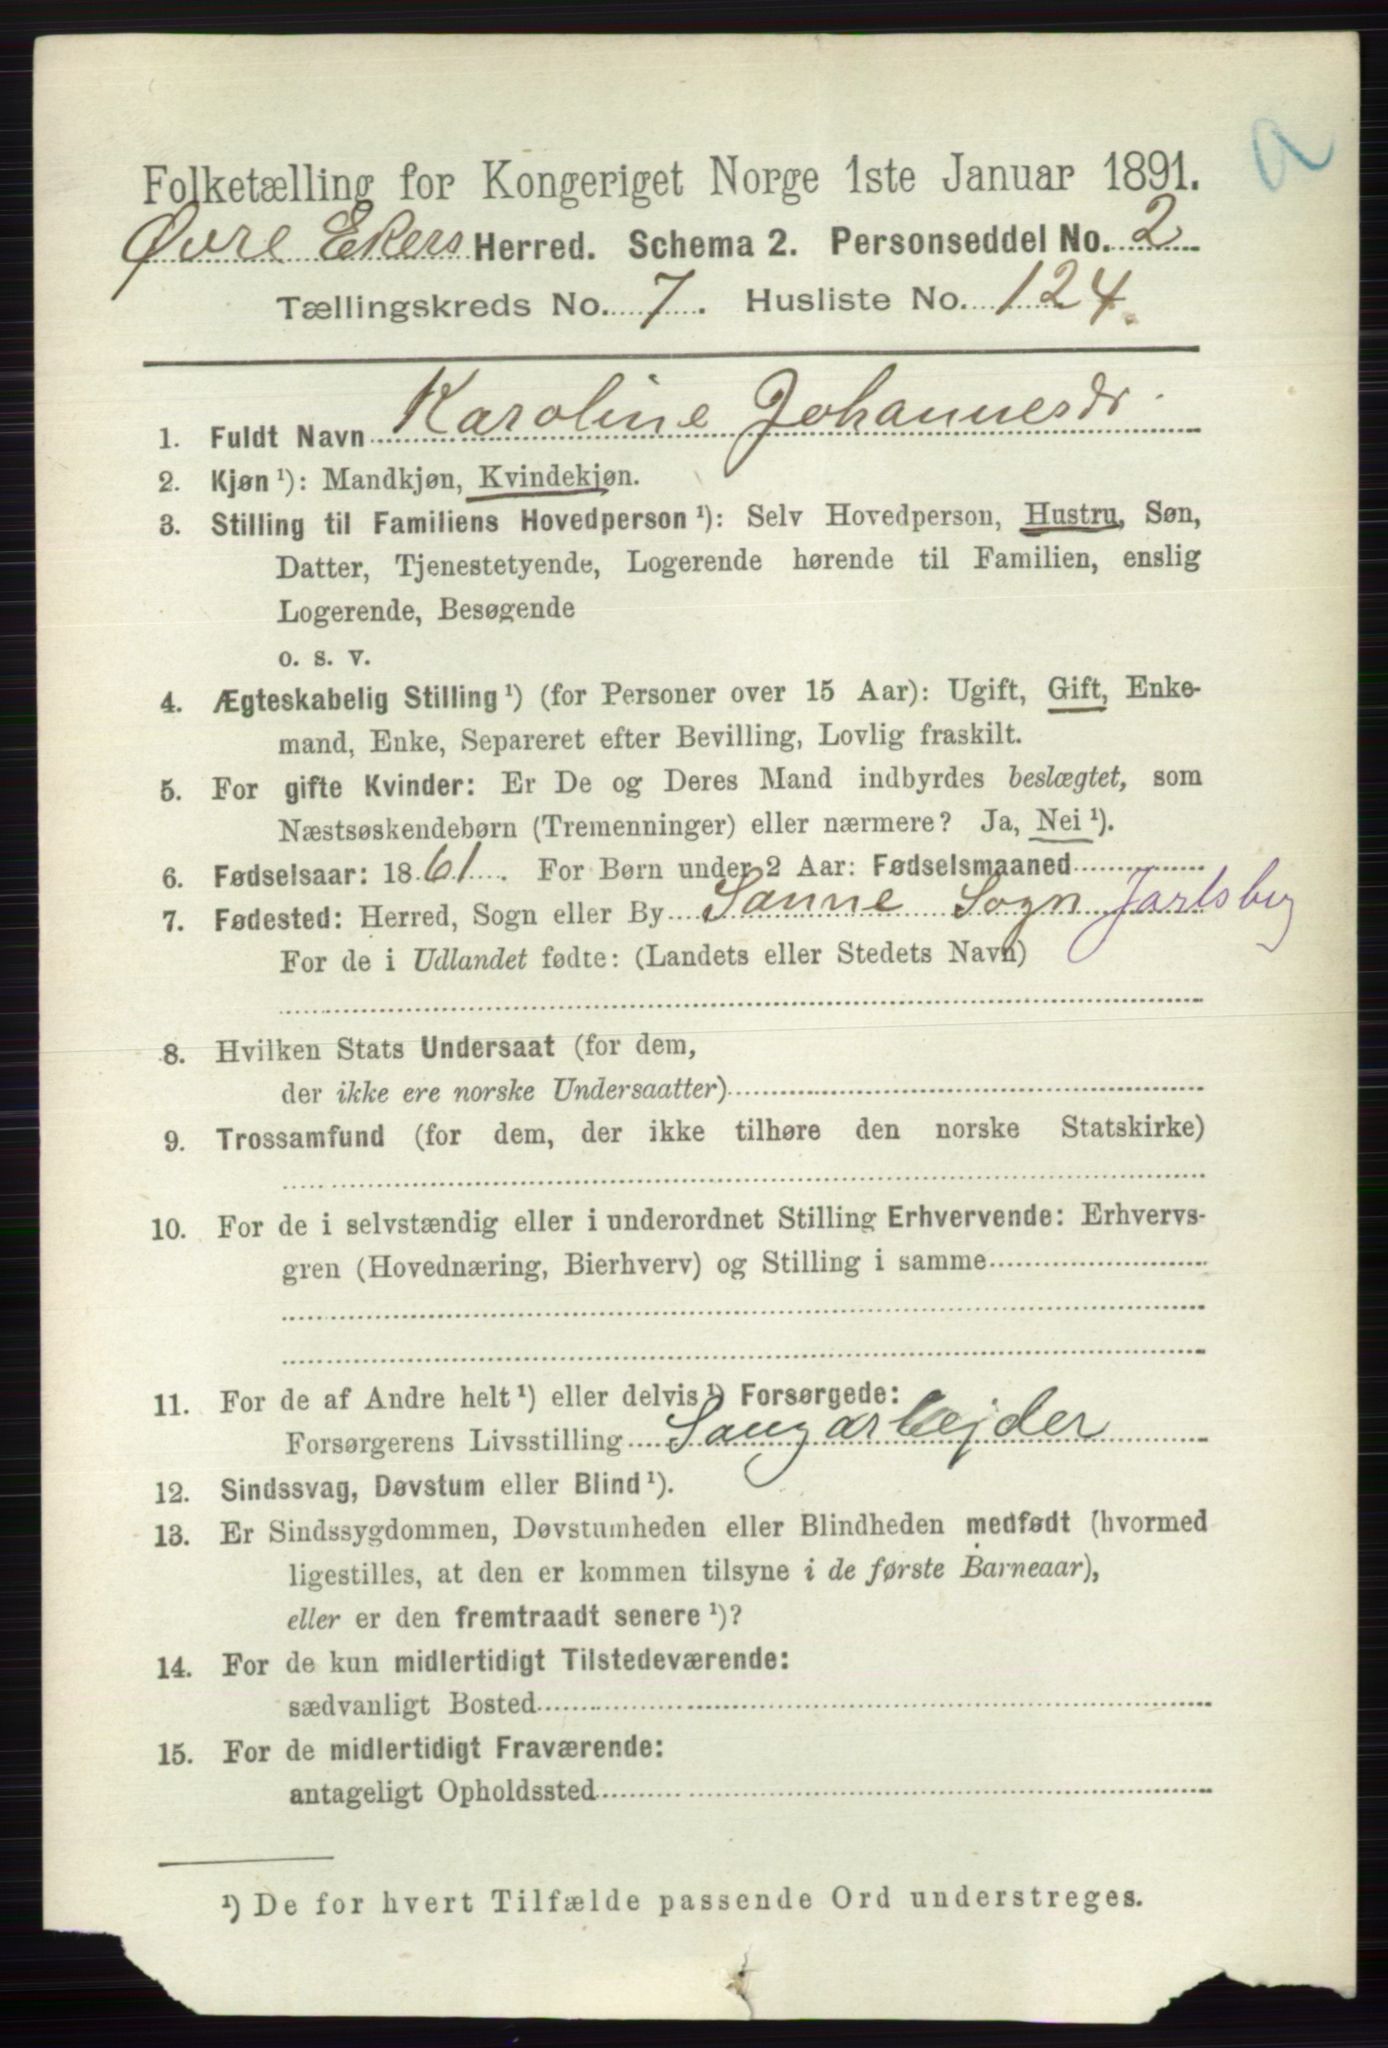 a
Folketælling for Kongeriget Norge 1ste Januar 1891.
Øvre Ekers Herred. Schema 2. Personseddel No. 2
Tællingskreds No. 7. Husliste No. 124.
1. Fuldt Navn Karoline Johannesdr.
2. Kjøn ¹): Mandkjøn, Kvindekjøn.
3. Stilling til Familiens Hovedperson ¹): Selv Hovedperson, Hustru, Søn,
Datter, Tjenestetyende, Logerende hørende til Familien, enslig
Logerende, Besøgende
o. s. v.
4. Ægteskabelig Stilling ¹) (for Personer over 15 Aar): Ugift, Gift, Enke-
mand, Enke, Separeret efter Bevilling, Lovlig fraskilt.
5. For gifte Kvinder: Er De og Deres Mand indbyrdes beslægtet, som
Næstsøskendebørn (Tremenninger) eller nærmere? Ja, Nei ¹).
6. Fødselsaar: 1861. For Børn under 2 Aar: Fødselsmaaned
7. Fødested: Herred, Sogn eller By Sanne Sogn Jarlsberg
For de i Udlandet fødte: (Landets eller Stedets Navn)
8. Hvilken Stats Undersaat (for dem,
der ikke ere norske Undersaatter)
9. Trossamfund (for dem, der ikke tilhøre den norske Statskirke)
10. For de i selvstændig eller i underordnet Stilling Erhvervende: Erhvervs-
gren (Hovednæring, Bierhverv) og Stilling i samme
11. For de af Andre helt ¹) eller delvis ¹) Forsørgede:
Forsørgerens Livsstilling Saugarbejder
12. Sindssvag, Døvstum eller Blind ¹).
13. Er Sindssygdommen, Døvstumheden eller Blindheden medfødt (hvormed
ligestilles, at den er kommen tilsyne i de første Barneaar),
eller er den fremtraadt senere ¹)?
14. For de kun midlertidigt Tilstedeværende:
sædvanligt Bosted
15. For de midlertidigt Fraværende:
antageligt Opholdssted
¹) De for hvert Tilfælde passende Ord understreges.